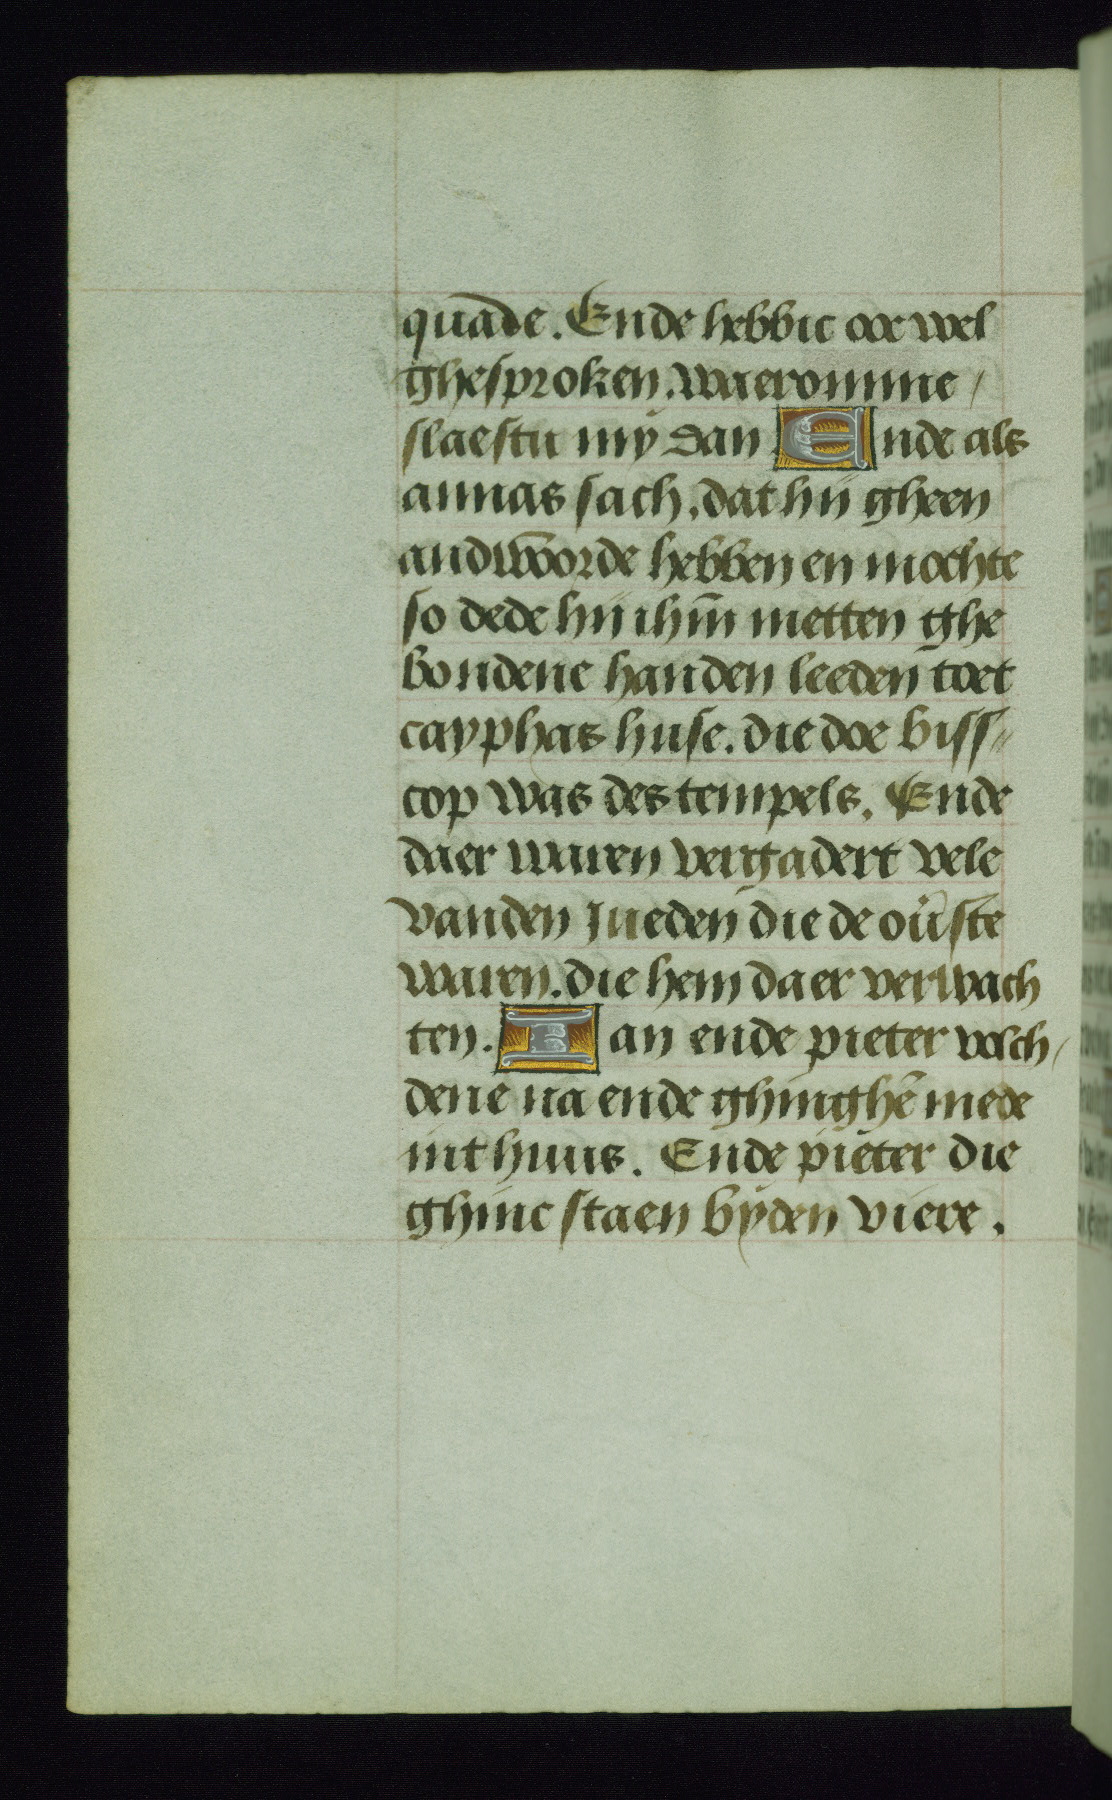 quade. Ende hebbic ooc wel
ghesproken. waeromme /
slaestu my dan Ende als
annas sach, dat hij gheen
andwoorde hebben en mochte
so dede hij ihm̄ metten ghe
bondene handen leeden toet
cayphas huse. die doe biss=
cop was des tempels. Ende
daer waren vergadert vele
vanden jueden die de ou̾ste
waren. die hem daer verwach
ten. Ian ende pieter volch/
dene na ende ghinghē mede
int huus. Ende pieter die
ghinc staen byden viere.